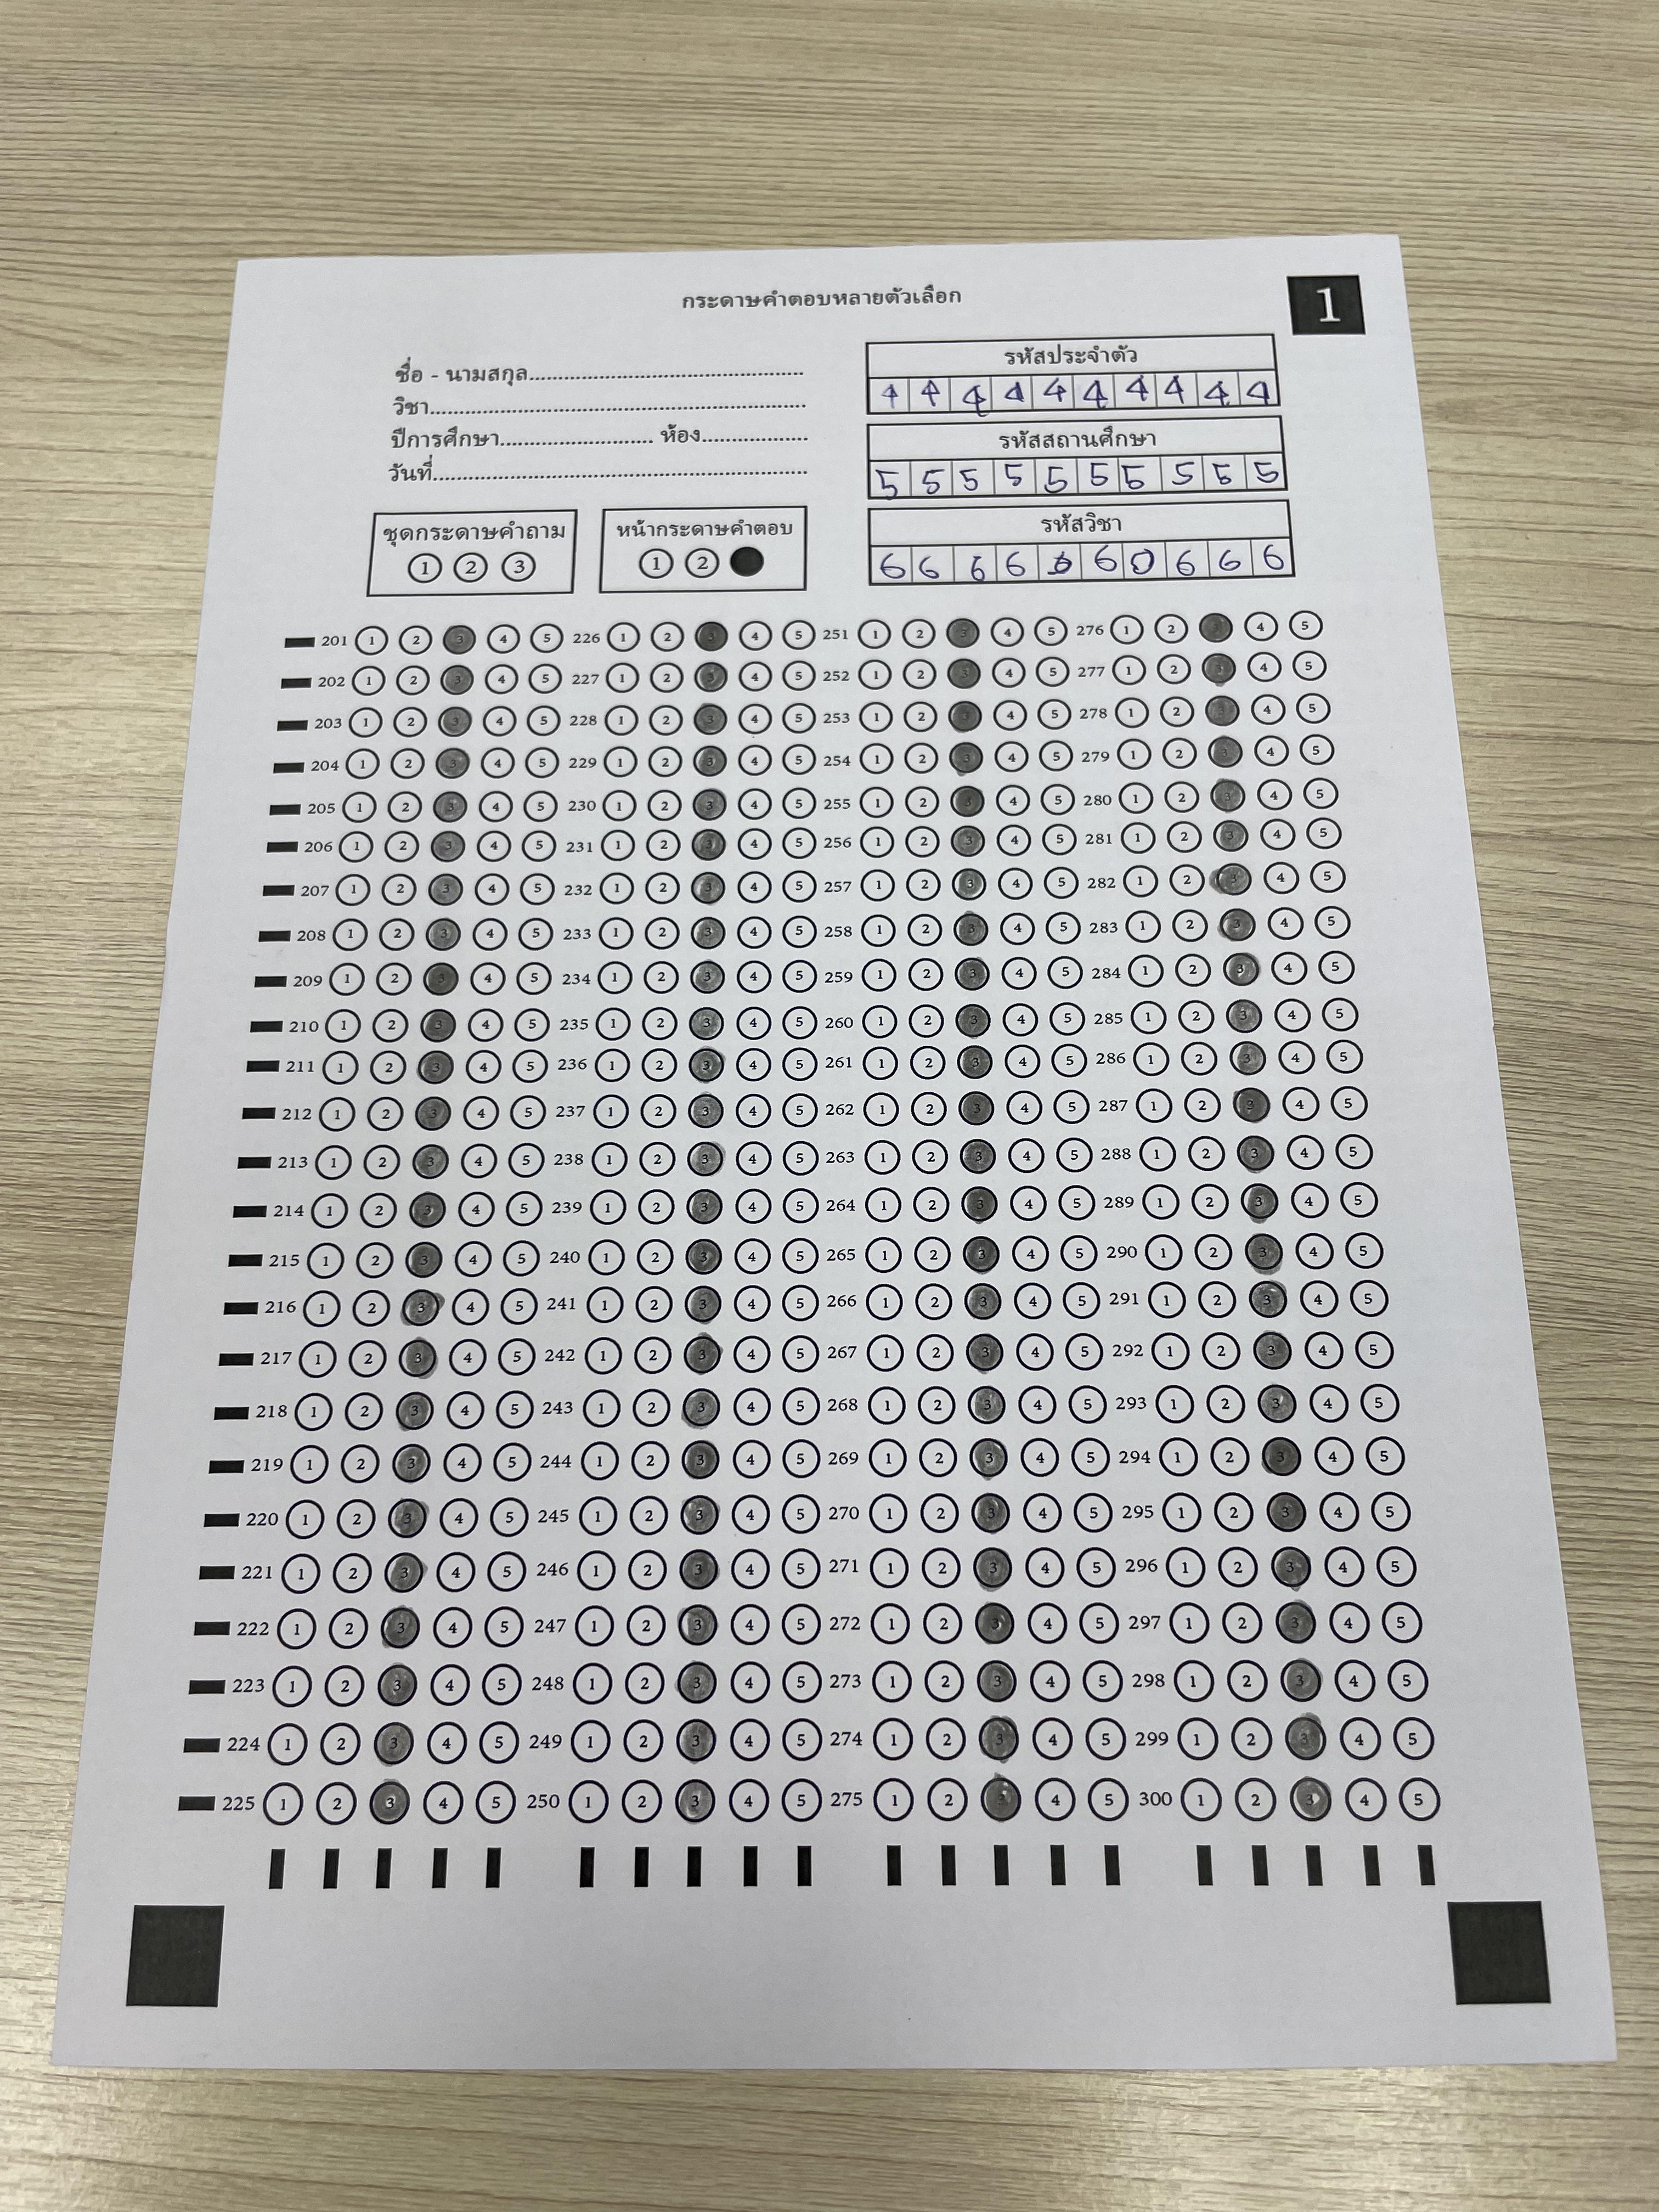 กระดาษคำตอบหลายตัวเลือก
1
ชื่อ - นามสกุล............................................................
วิชา............................................................
ปีการศึกษา................................. ห้อง.......................
วันที่............................................................
รหัสประจำตัว
4 4 4 4 4 4 4 4 4 4
รหัสสถานศึกษา
5 5 5 5 5 5 5 5 5 5
รหัสวิชา
6 6 6 6 6 0 6 6 6
ชุดกระดาษคำถาม
1 2 3
หน้ากระดาษคำตอบ
1 2
201 1 2 3 4 5 226 1 2 3 4 5 251 1 2 3 4 5 276 1 2 3 4 5
202 1 2 3 4 5 227 1 2 3 4 5 252 1 2 3 4 5 277 1 2 3 4 5
203 1 2 3 4 5 228 1 2 3 4 5 253 1 2 3 4 5 278 1 2 3 4 5
204 1 2 3 4 5 229 1 2 3 4 5 254 1 2 3 4 5 279 1 2 3 4 5
205 1 2 3 4 5 230 1 2 3 4 5 255 1 2 3 4 5 280 1 2 3 4 5
206 1 2 3 4 5 231 1 2 3 4 5 256 1 2 3 4 5 281 1 2 3 4 5
207 1 2 3 4 5 232 1 2 3 4 5 257 1 2 3 4 5 282 1 2 3 4 5
208 1 2 3 4 5 233 1 2 3 4 5 258 1 2 3 4 5 283 1 2 3 4 5
209 1 2 3 4 5 234 1 2 3 4 5 259 1 2 3 4 5 284 1 2 3 4 5
210 1 2 3 4 5 235 1 2 3 4 5 260 1 2 3 4 5 285 1 2 3 4 5
211 1 2 3 4 5 236 1 2 3 4 5 261 1 2 3 4 5 286 1 2 3 4 5
212 1 2 3 4 5 237 1 2 3 4 5 262 1 2 3 4 5 287 1 2 3 4 5
213 1 2 3 4 5 238 1 2 3 4 5 263 1 2 3 4 5 288 1 2 3 4 5
214 1 2 3 4 5 239 1 2 3 4 5 264 1 2 3 4 5 289 1 2 3 4 5
215 1 2 3 4 5 240 1 2 3 4 5 265 1 2 3 4 5 290 1 2 3 4 5
216 1 2 3 4 5 241 1 2 3 4 5 266 1 2 3 4 5 291 1 2 3 4 5
217 1 2 3 4 5 242 1 2 3 4 5 267 1 2 3 4 5 292 1 2 3 4 5
218 1 2 3 4 5 243 1 2 3 4 5 268 1 2 3 4 5 293 1 2 3 4 5
219 1 2 3 4 5 244 1 2 3 4 5 269 1 2 3 4 5 294 1 2 3 4 5
220 1 2 3 4 5 245 1 2 3 4 5 270 1 2 3 4 5 295 1 2 3 4 5
221 1 2 3 4 5 246 1 2 3 4 5 271 1 2 3 4 5 296 1 2 3 4 5
222 1 2 3 4 5 247 1 2 3 4 5 272 1 2 3 4 5 297 1 2 3 4 5
223 1 2 3 4 5 248 1 2 3 4 5 273 1 2 3 4 5 298 1 2 3 4 5
224 1 2 3 4 5 249 1 2 3 4 5 274 1 2 3 4 5 299 1 2 3 4 5
225 1 2 3 4 5 250 1 2 3 4 5 275 1 2 3 4 5 300 1 2 3 4 5